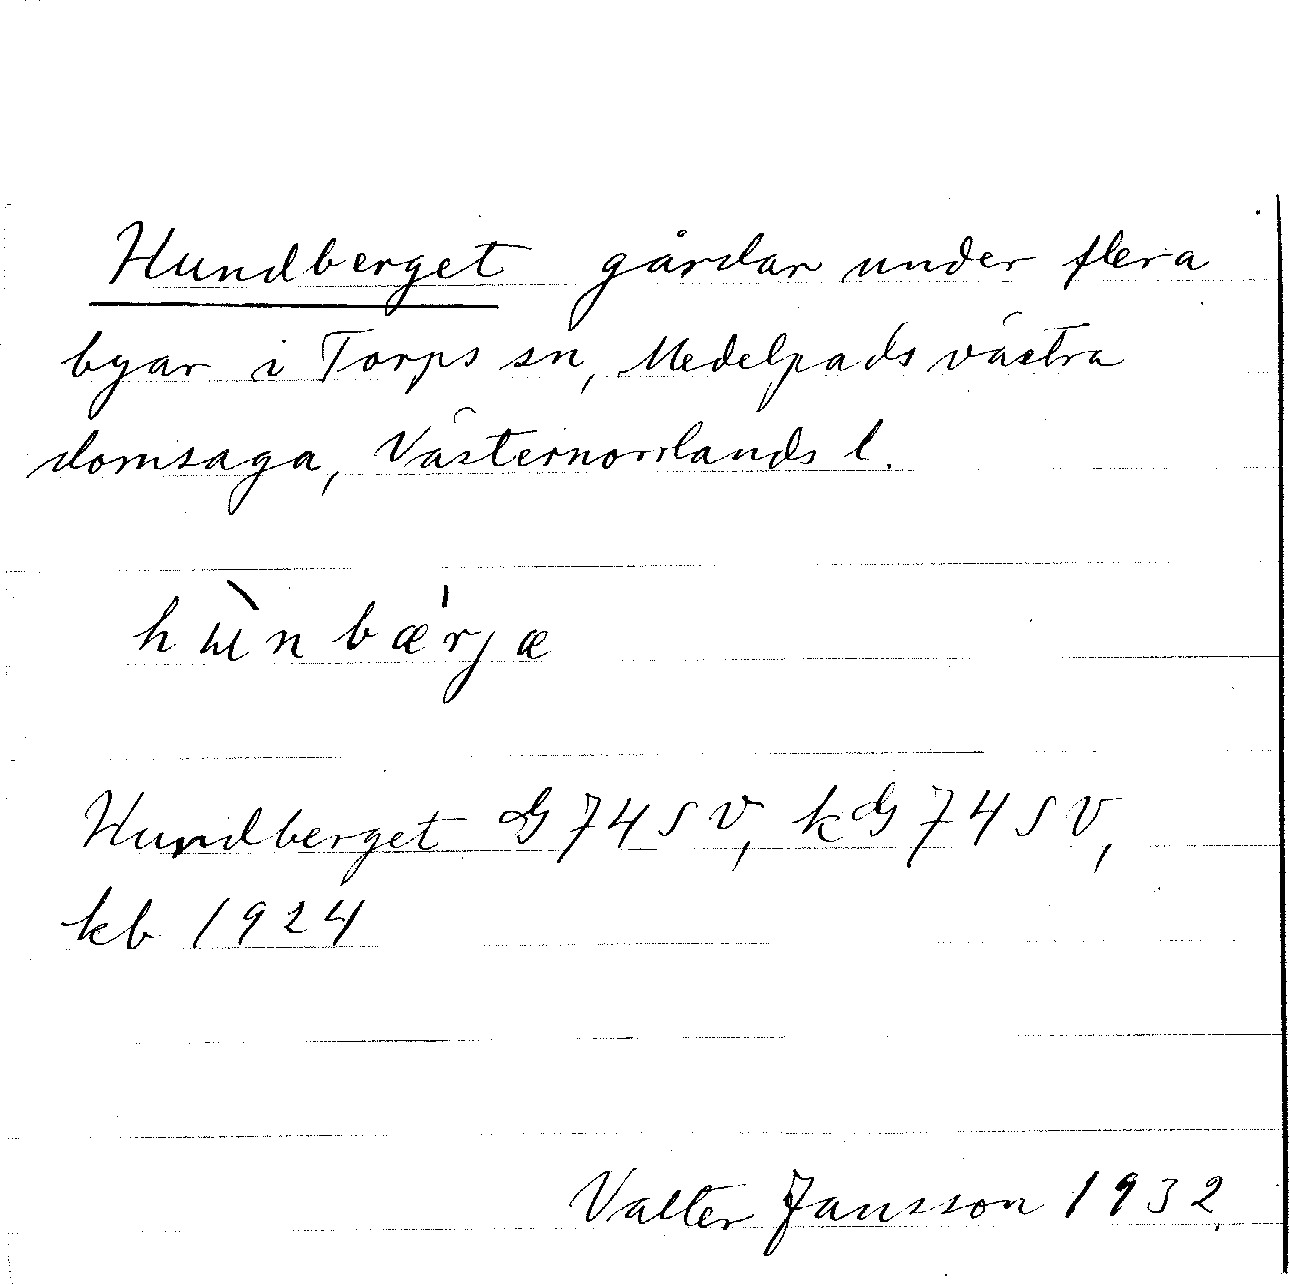 Hundberget gårdar under flera
byar i Torps sn, Medelpads västra
domsaga, Västernorrlands l.
hùnbæ'rjæ
Hundberget G 74 SV, kG 74 SV,
kb 1924
Valter Jansson 1932.